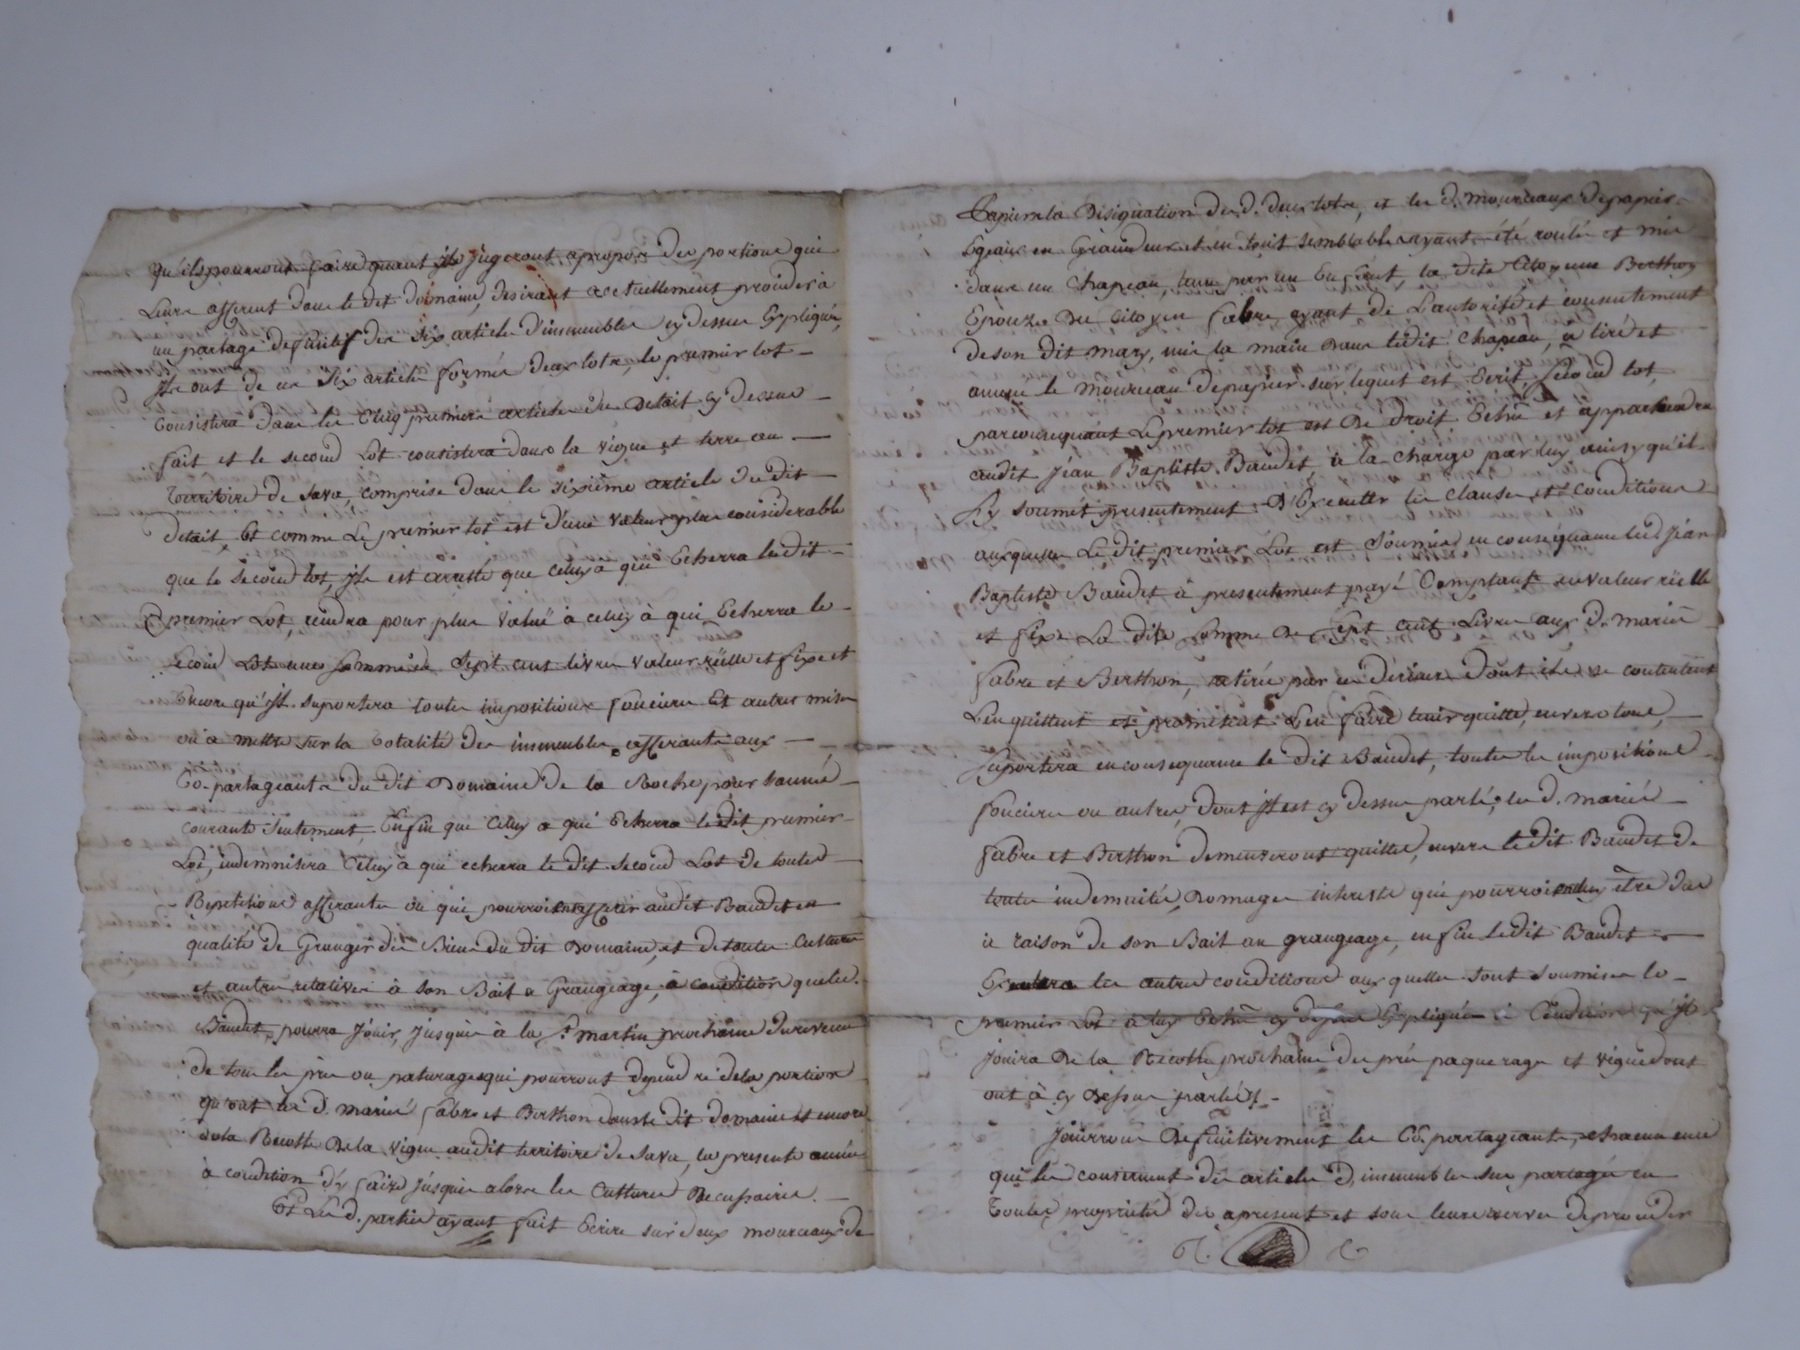 qu'ils pourront faire quant ils jugeront apropos des portions qui
leurs afferent dans le dit domaine, desirant actuellement proceder à
un partage définitif des six articles d'immeubles cy dessus Expliqués,
Ils ont de ces six articles formé deux lots, le premier lot
Consistera dans les Cinq premiers articles du Detait cy dessus
fait et le second Lot consistera dans la vigne et terre au
Territoire de Sava, comprise dans le sixième article du dit
detait, Et comme Le premier lot est d'une valeur plus considérable
que le second lot, Ils est arresté que celuy à qui Echerra ledit
premier Lot, rendra pour plus value à celuy à qui Echerra le
second Lot une somme de Sept cent livres valeur réelle et fixe et
Encore qu'Il suportera toutes impositions foncieres Et autres mises
ou a mettre sur la totalité des immeubles afferants aux
Co-partageants du dit Domaine de la Roche pour l'année
courante seulement, Enfin que Celuy a qui Echerra le dit premier
Lot, indemnisera Celuy à qui echerra le dit second Lot de toutes
Repetitions afferantes ou qui pourroient afferir audit Baudet en
qualité de Granger des Biens du dit Domaine, et de toutes Cultures
et autres relatives à son Bail a Grangeage, à condition que led.
Baudet pourra jouir, jusques à la St. martin prochaine du revenu
de tous les prés ou paturages qui pourront dependre de la portion
qu'ont les d. mariés fabre et Berthon dans le dit domaine et encore
de la Recolte de la vigne audit territoire de Sava, la presente année
à condition d'y faire jusques alors les Cultures Necessaires.
Et Les d. parties ayant fait Ecrire sur deux mourceaux de
Papier la Désignation des d. deux lots, et les d. mourceaux de papier
Egaux en Grandeur et en tout semblables ayant été roulés et mis
dans un Chapeau, tenu par un Enfant, la dite Citoyenne Berthon
Epouze du Citoyen fabre ayant de L'autorité et consentement
de son dit mary, mis la main dans ledit Chapeau, a tiré et
ouvert le mourceau de papier sur lequel est Ecrit, second lot,
par consequant Le premier lot est De droit Echu et appartiendra
audit Jean Baptiste Baudet, à la charge par luy ainsy qu'il
s'y soumet presentement D'Executter les clauses et conditions
auxquelles Le dit premier Lot est soumis en conséquance led. Jean
Baptiste Baudet à presentement payé Comptant en valeur réelle
et fixe La dite somme de Sept cent Livres aux d. mariés
fabre et Berthon, retirée par ces derniers dont ils se contentent
L'en quittent et promettent L'en faire tenir quitte, envers tous,
suportera en consequance le dit Baudet, toutes les impositions
foncieres ou autres, dont Il est cy dessus parlé, les d. mariés
fabre et Berthon demeureront quittes, envers le dit Baudet de
toutes indemnités, Domages interests qui pourroient luy être dus
à raison de son Bail au grangeage, enfin ledit Baudet
Executera les autres conditions aux quelles sont soumises le
premier Lot à luy Echu cy dessus Expliqué à Condition qu'Il
jouira De la Recolte prochaine des prés paquerages et vigne dont
ont à cy Dessus parlés.
Jouiront Definitivement les Co-partageants, chacun en ce
qui les concernent des articles d'immeubles sus partagés en
Toutes propriétés dès apresent et sous leurs reserves de proceder